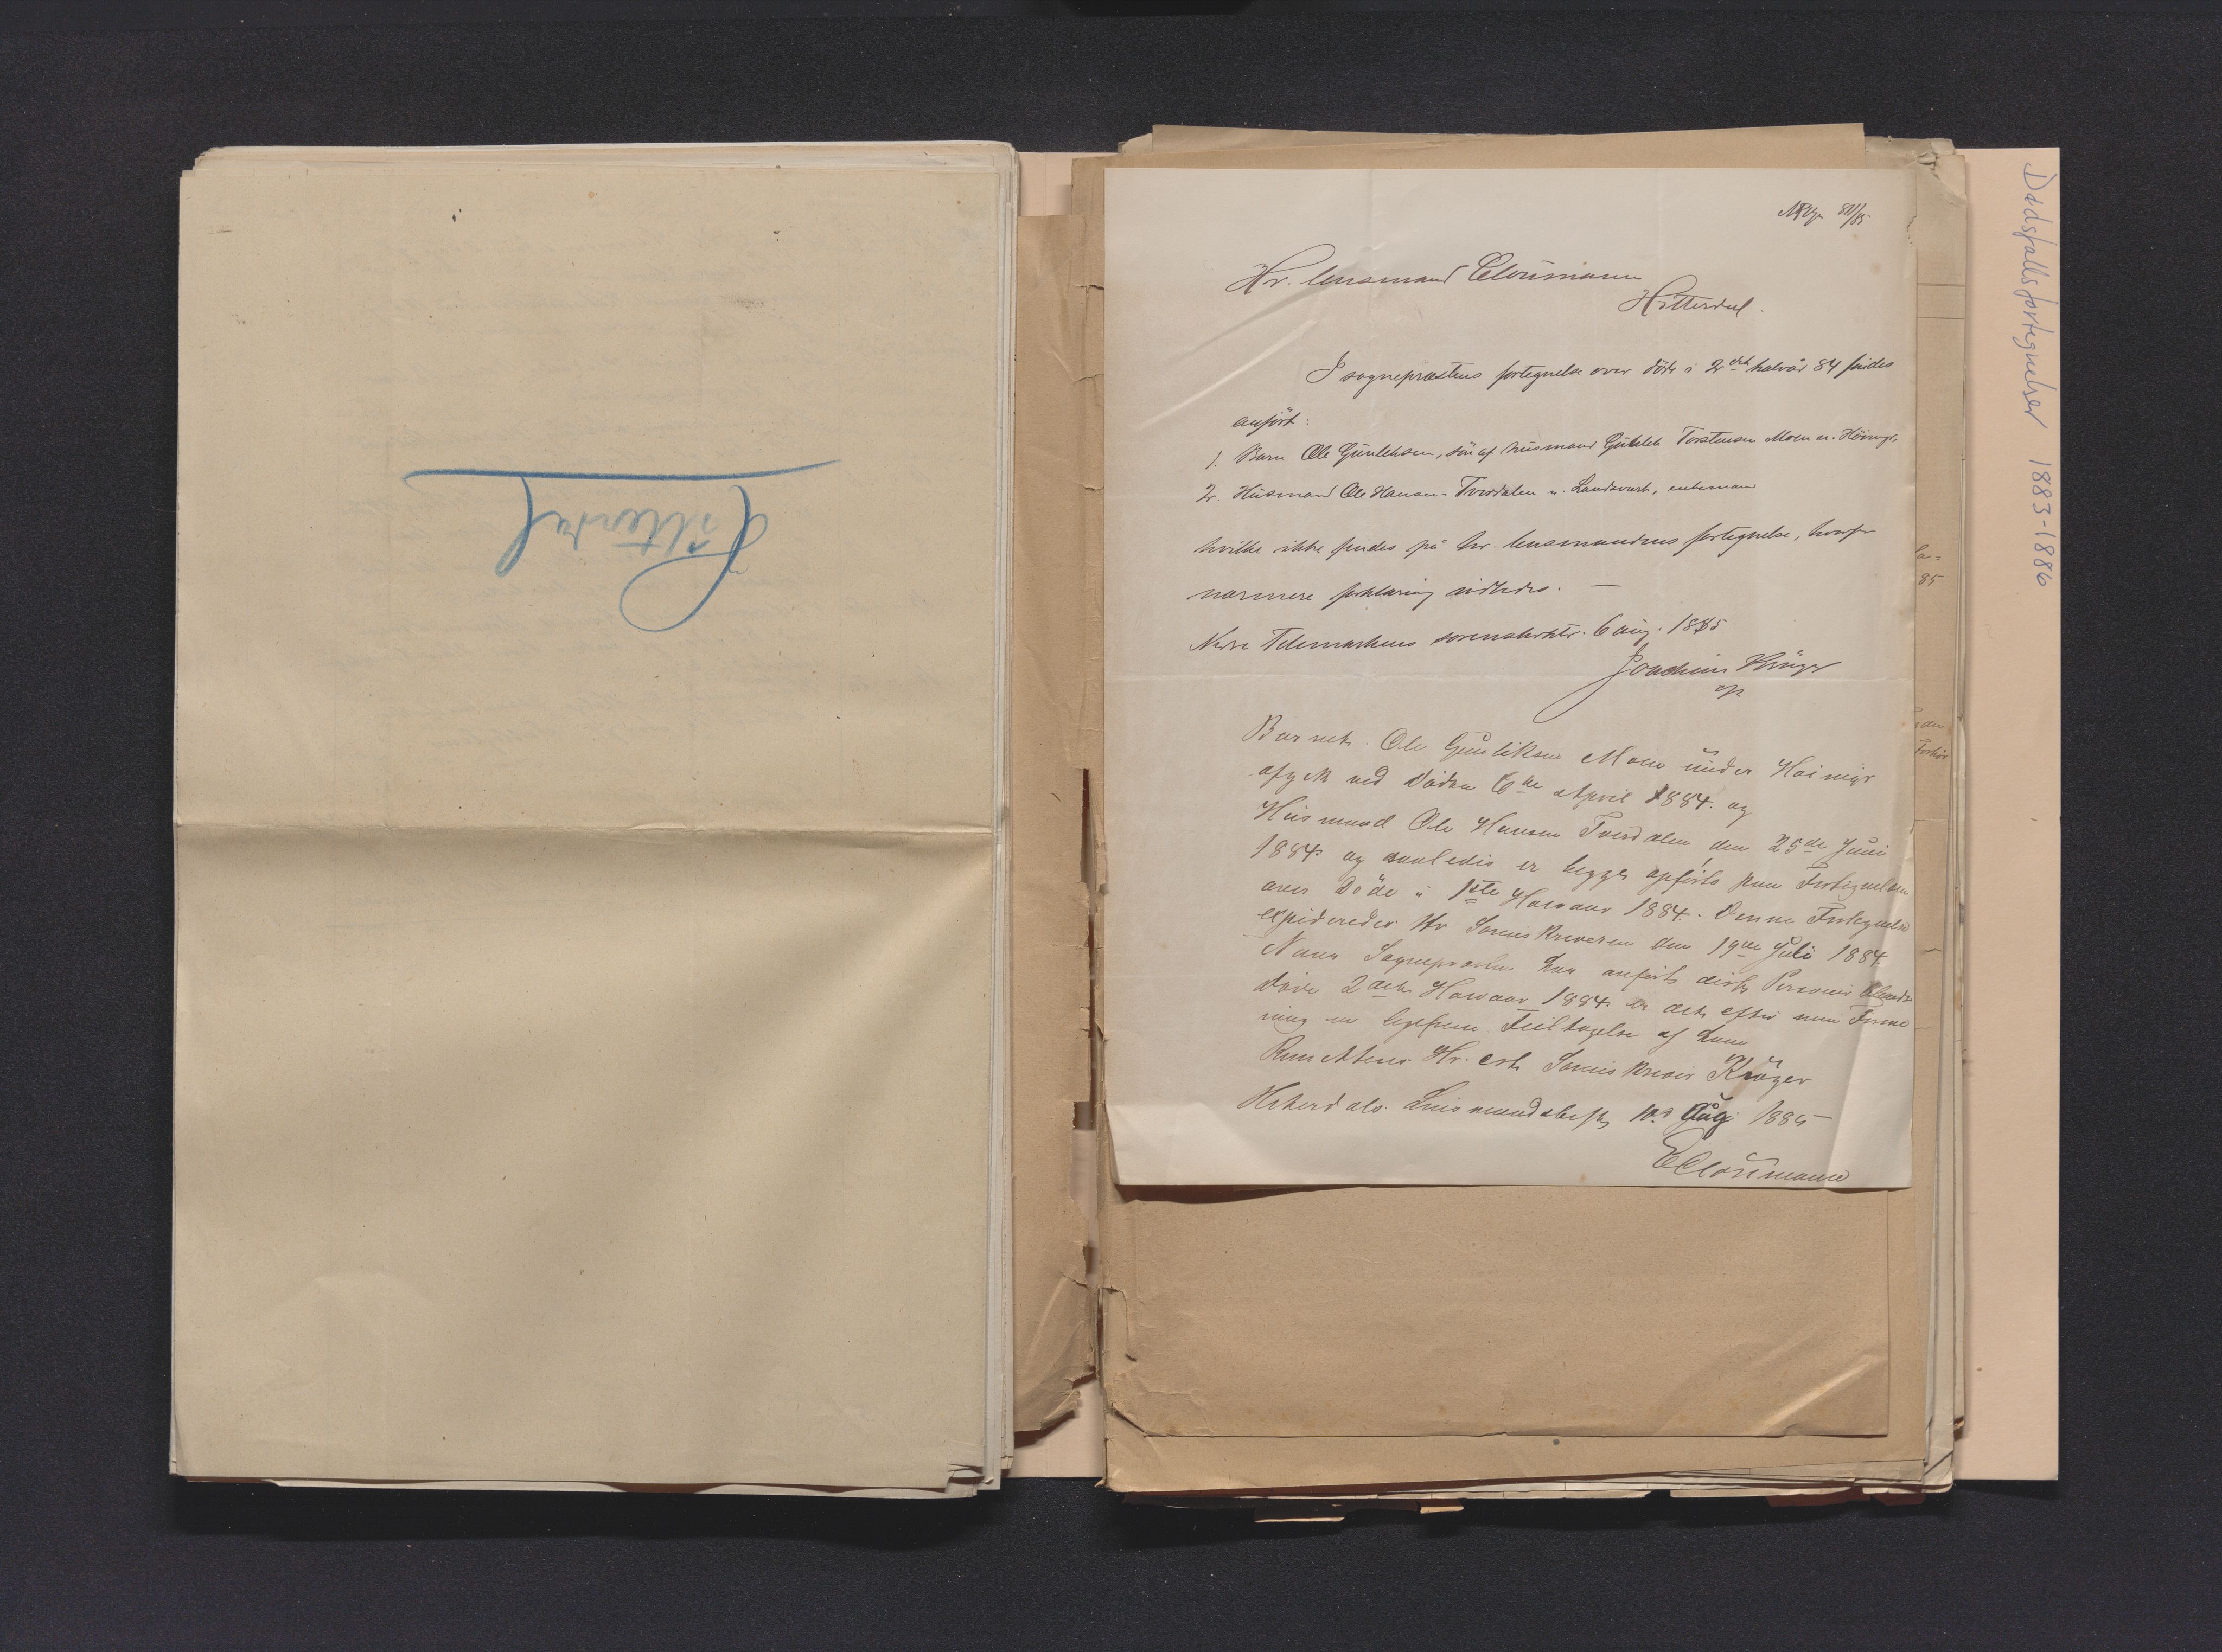 Hitterdal
Hr. lensmand Clousmann
Hitterdal.
I sogneprestens fortegnelse over döde i 2det halvår 84 findes
anfört:
1. Barn Ole Gunleksen, sön af husmand Gunlek Torstensen Moen u.
2. Husmand Ole Hansen Tverdalen u. Landsverk, enkemand
hvilke ikke findes på hr. lensmandens fortegnelse, hvorfor
nærmere forklaring udbedes. —
Nedre Telemarkens sorenskrivr. 6 aug. 1885
Joachim Krüger
Barnet Ole Gunliksen Moen under Hoimyr
afgik ved Döden 6te April 1884. og
Husmand Ole Hansen Tverdalen den 25de Juni
1884. og saaledis er begge opförte paa Fortegnelsen
over Döde i 1ste Halvaar 1884. Denne Fortegnelse
expideredes Hr Sorenskriveren den 19de Juli 1884.
Naar Sognepresten har anfört disse Personer blandt
döde 2det Halvaar 1884 er det efter min Forme
ning en Feiltagelse af ham
Hr. cst. Sorenskriver Krüger
Hiterdals Lensmandsbest. 10. Aug. 1885
EClousmann
la=
85
Dødsfallsfortegnelser 1883-1886